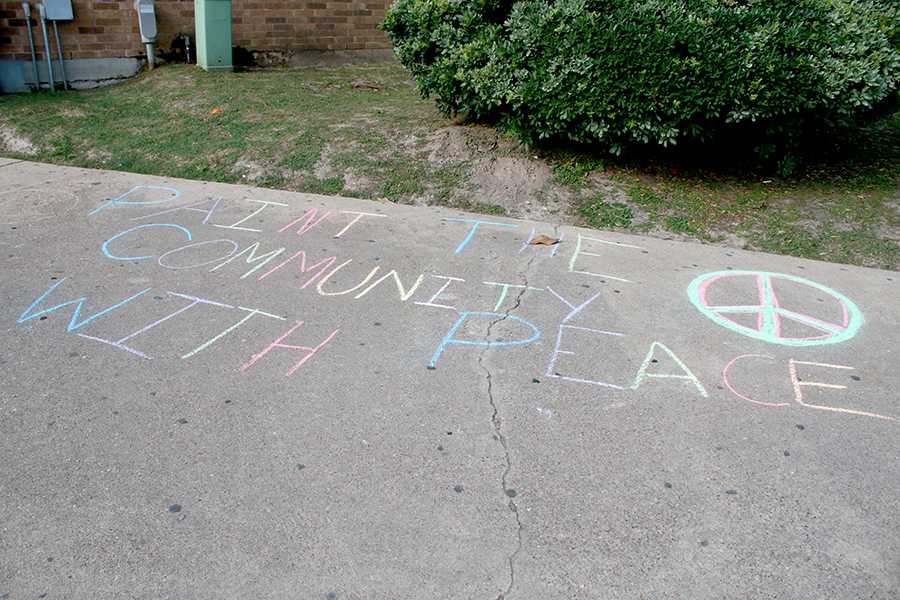 PAINT THE
COMMUNITY
WITH PEACE